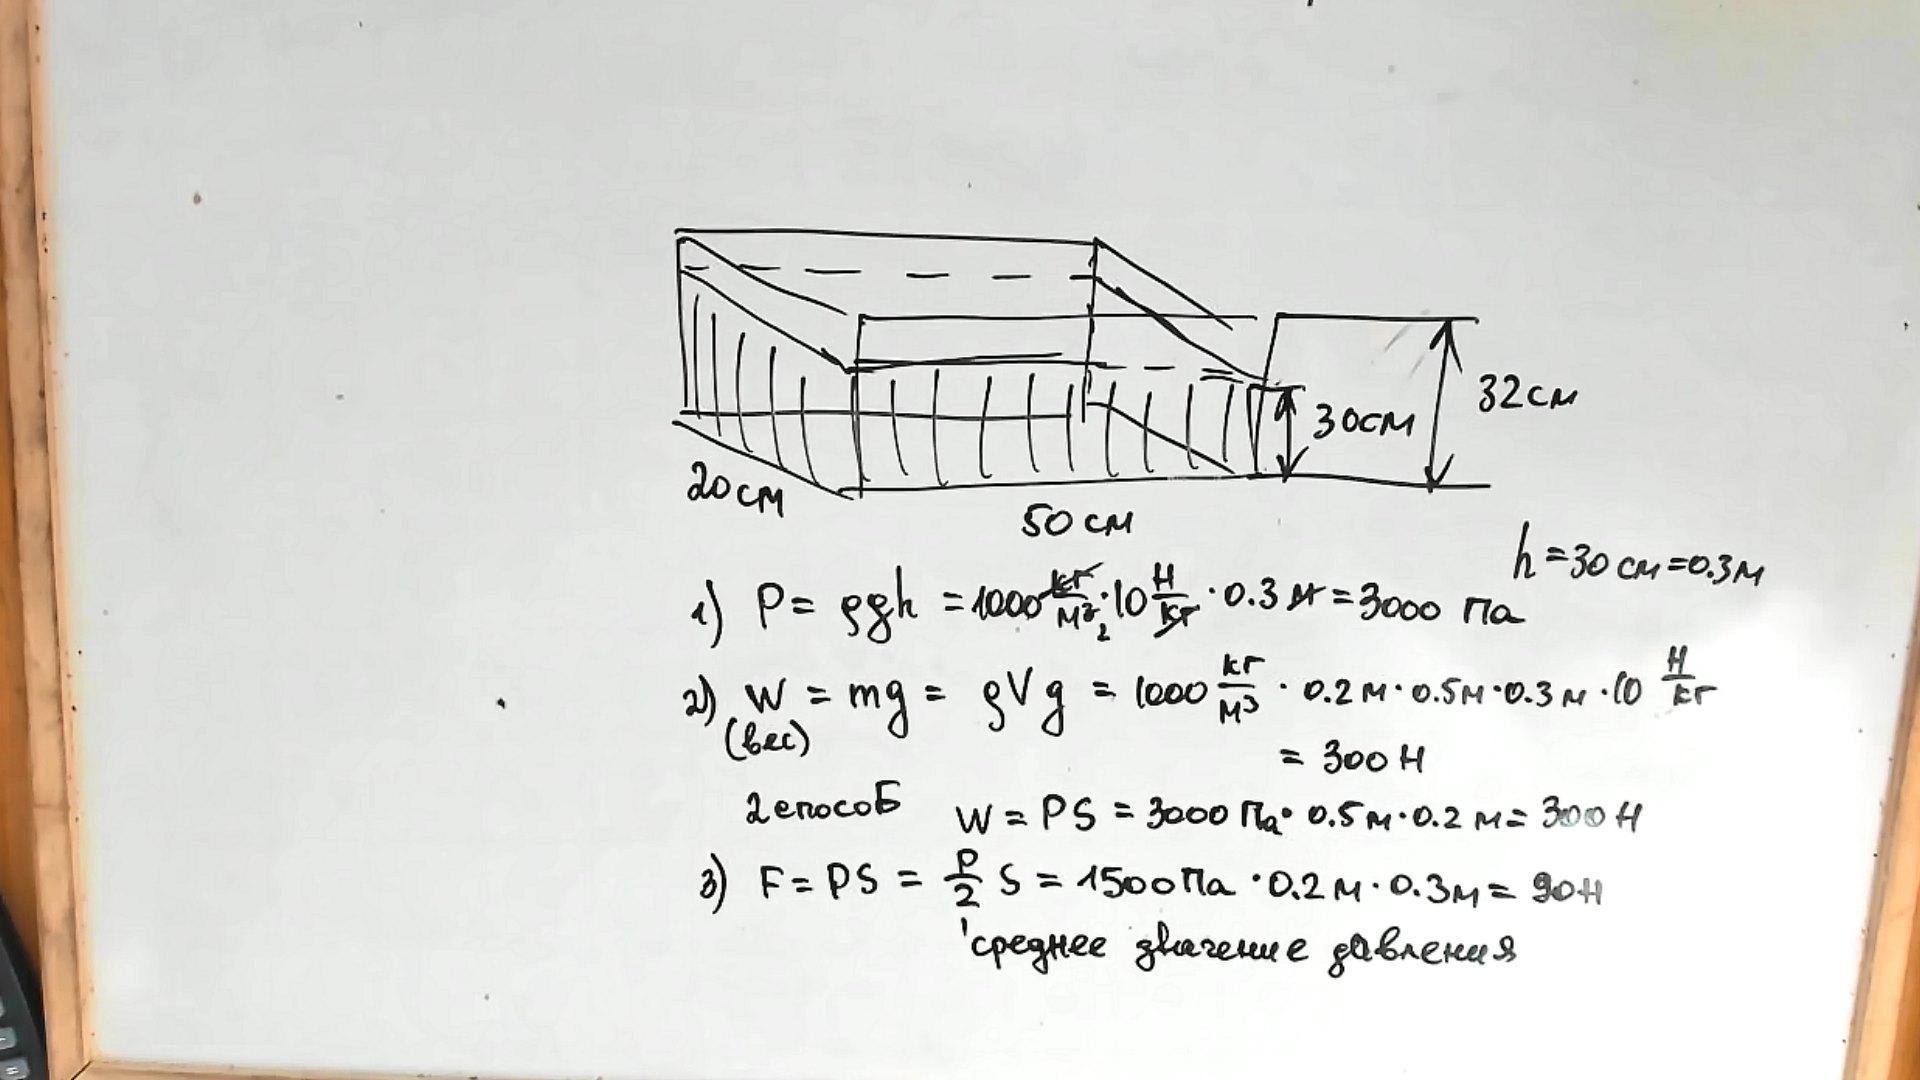 32см
30см
20см
50 см
h = 30 см = 0.3м
1) P = ρgh = 1000 кг/м³ · 10 Н/кг · 0.3 м = 3000 Па
2) W = mg = ρVg = 1000 кг/м³ · 0.2 м · 0.5м · 0.3 м · 10 Н/кг
(вес)
= 300 Н
2 способ W = PS = 3000 Па · 0.5 м · 0.2 м = 300 Н
3) F = PS = P/2 S = 1500 Па · 0.2 м · 0.3м = 90Н
среднее значение давления